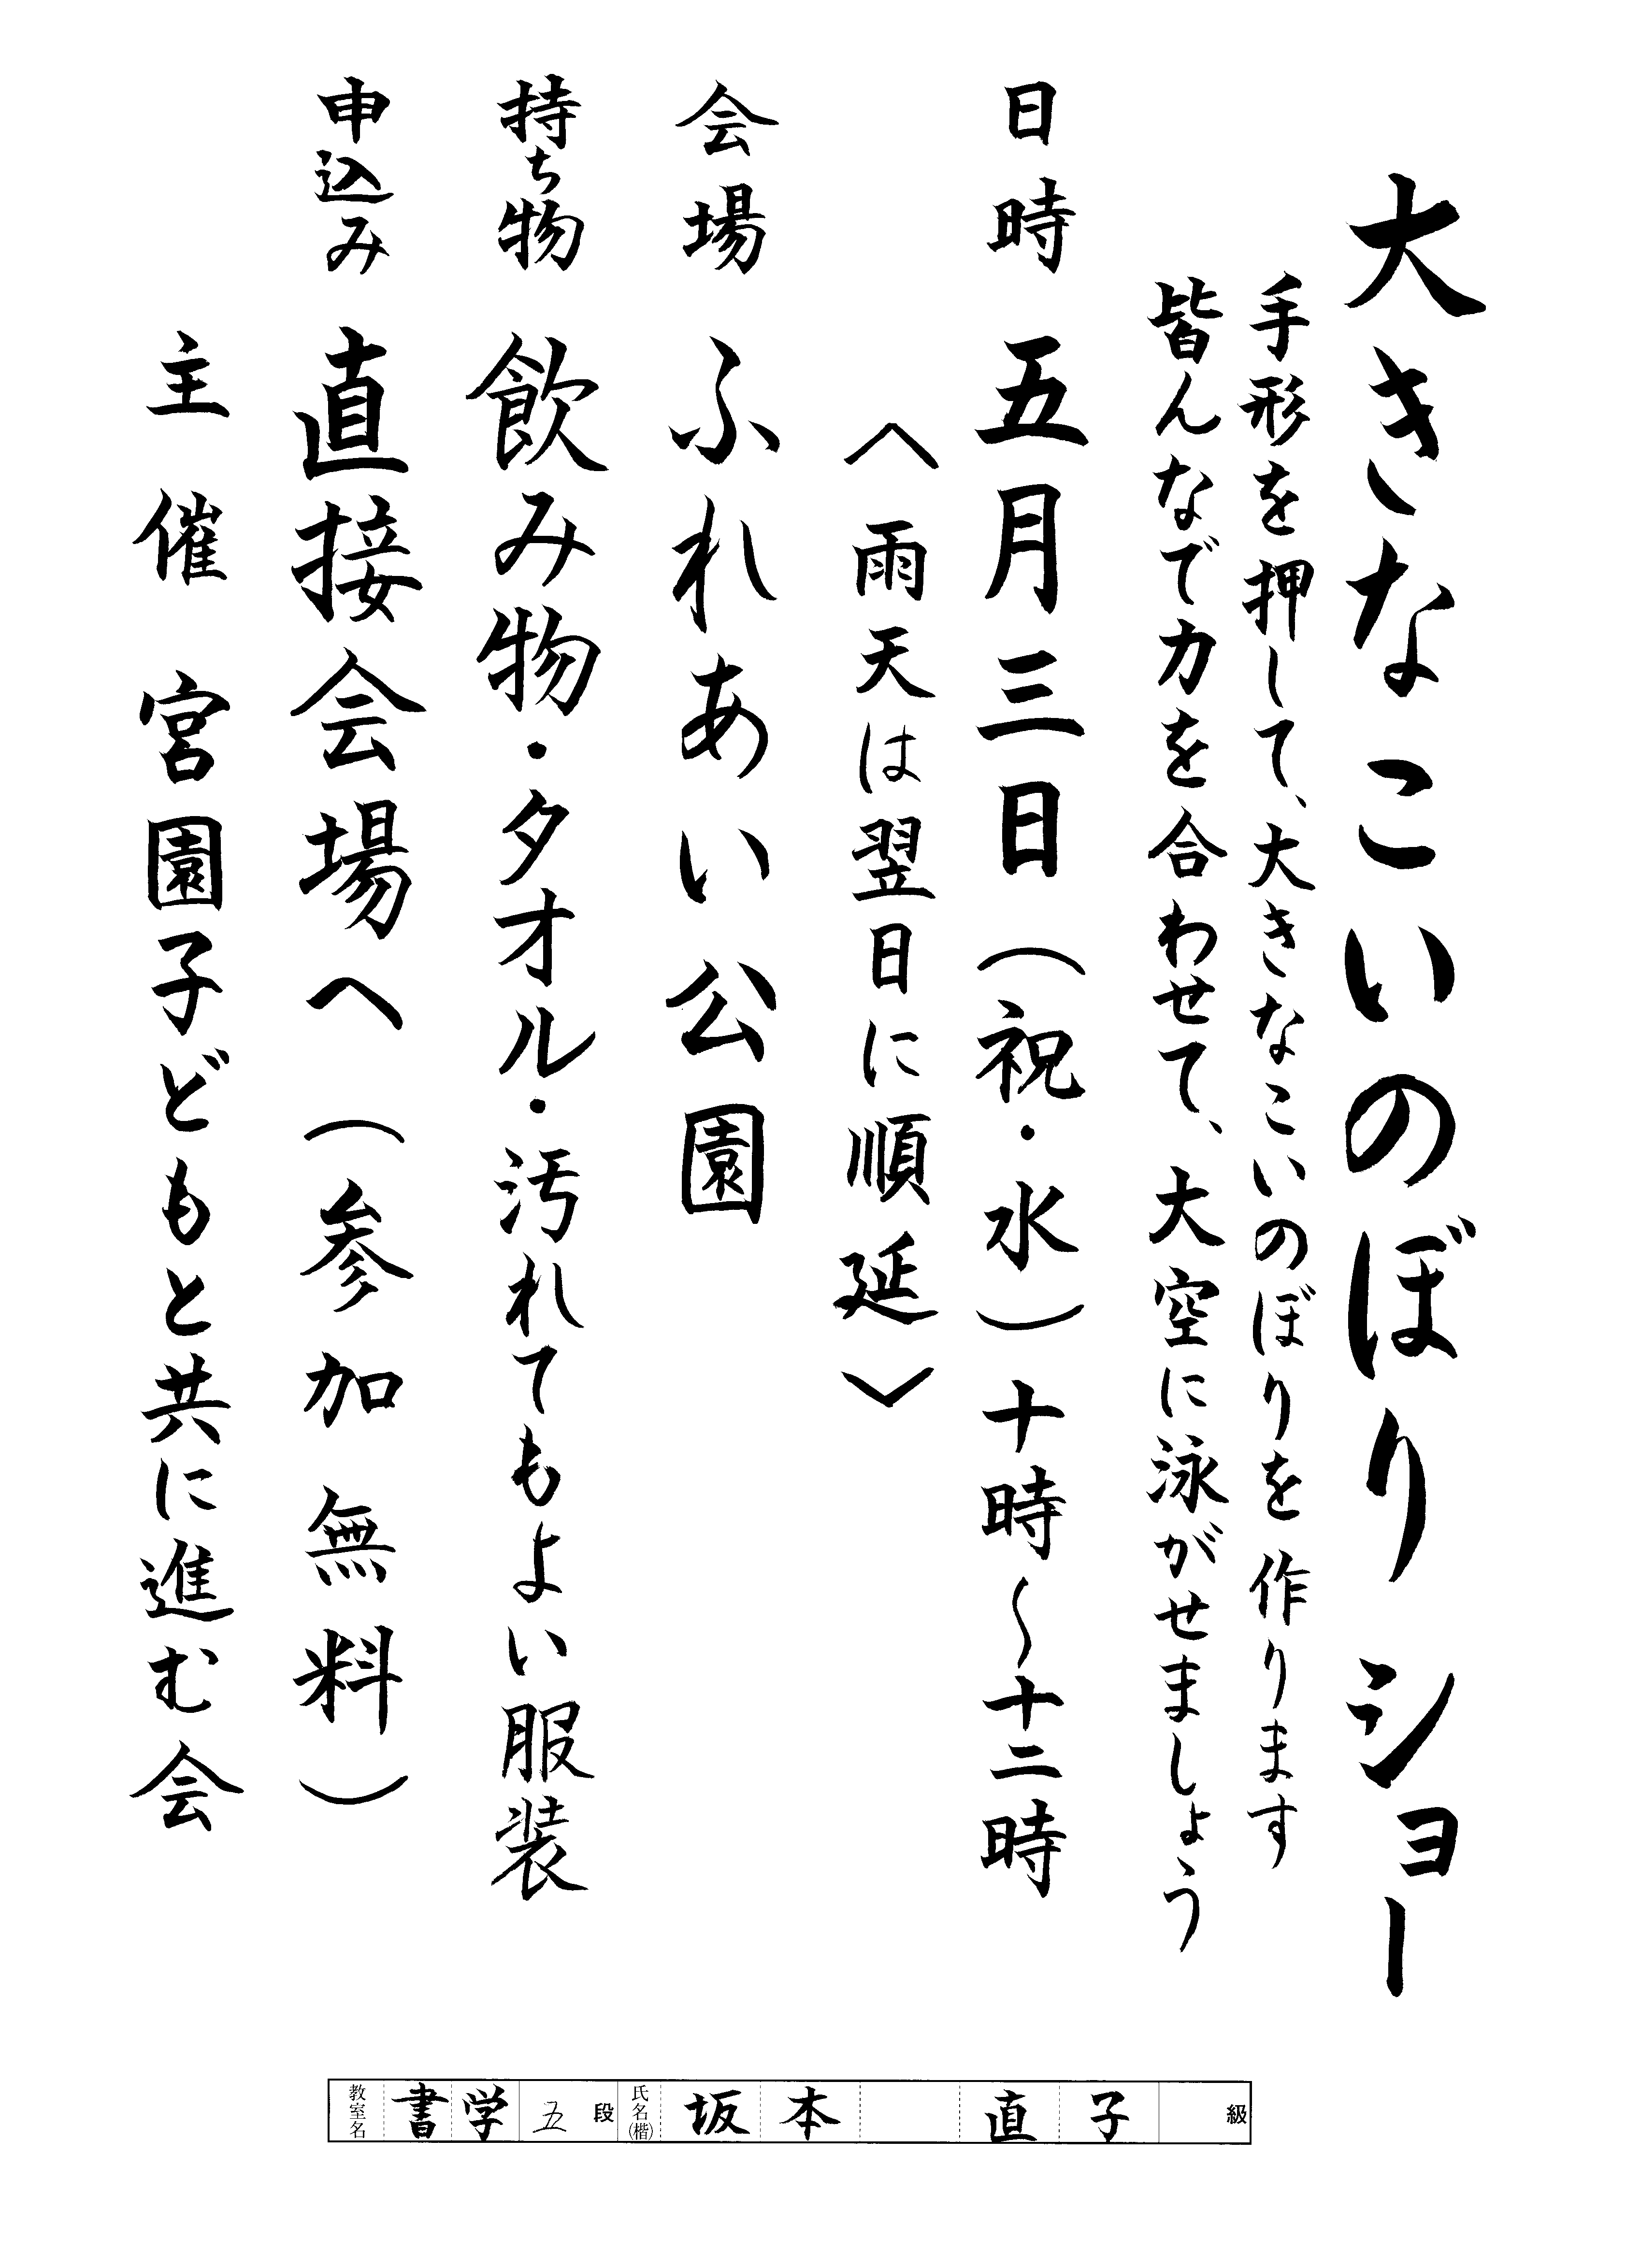 大きなこいのぼりショー
手形を押して、大きなこいのぼりを作ります
皆んなで力を合わせて、大空に泳がせましょう
日時 五月三日（祝・水）十時〜十二時
〈雨天は翌日に順延〉
会場 ふれあい公園
持ち物 飲み物・タオル・汚れてもよい服装
申込み 直接会場へ（参加無料）
主催 宮園子どもと共に進む会
教室名 書学 五段 氏名(楷) 坂本 直子 級